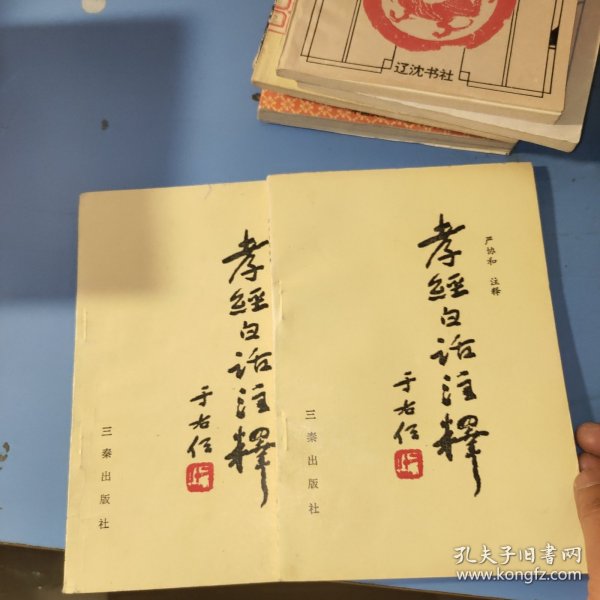 辽沈书社
孝經白话注釋
于右任
三秦出版社
严协和 注释
孝經白话注釋
于右任
三秦出版社
孔夫子旧书网
www.kongfz.com